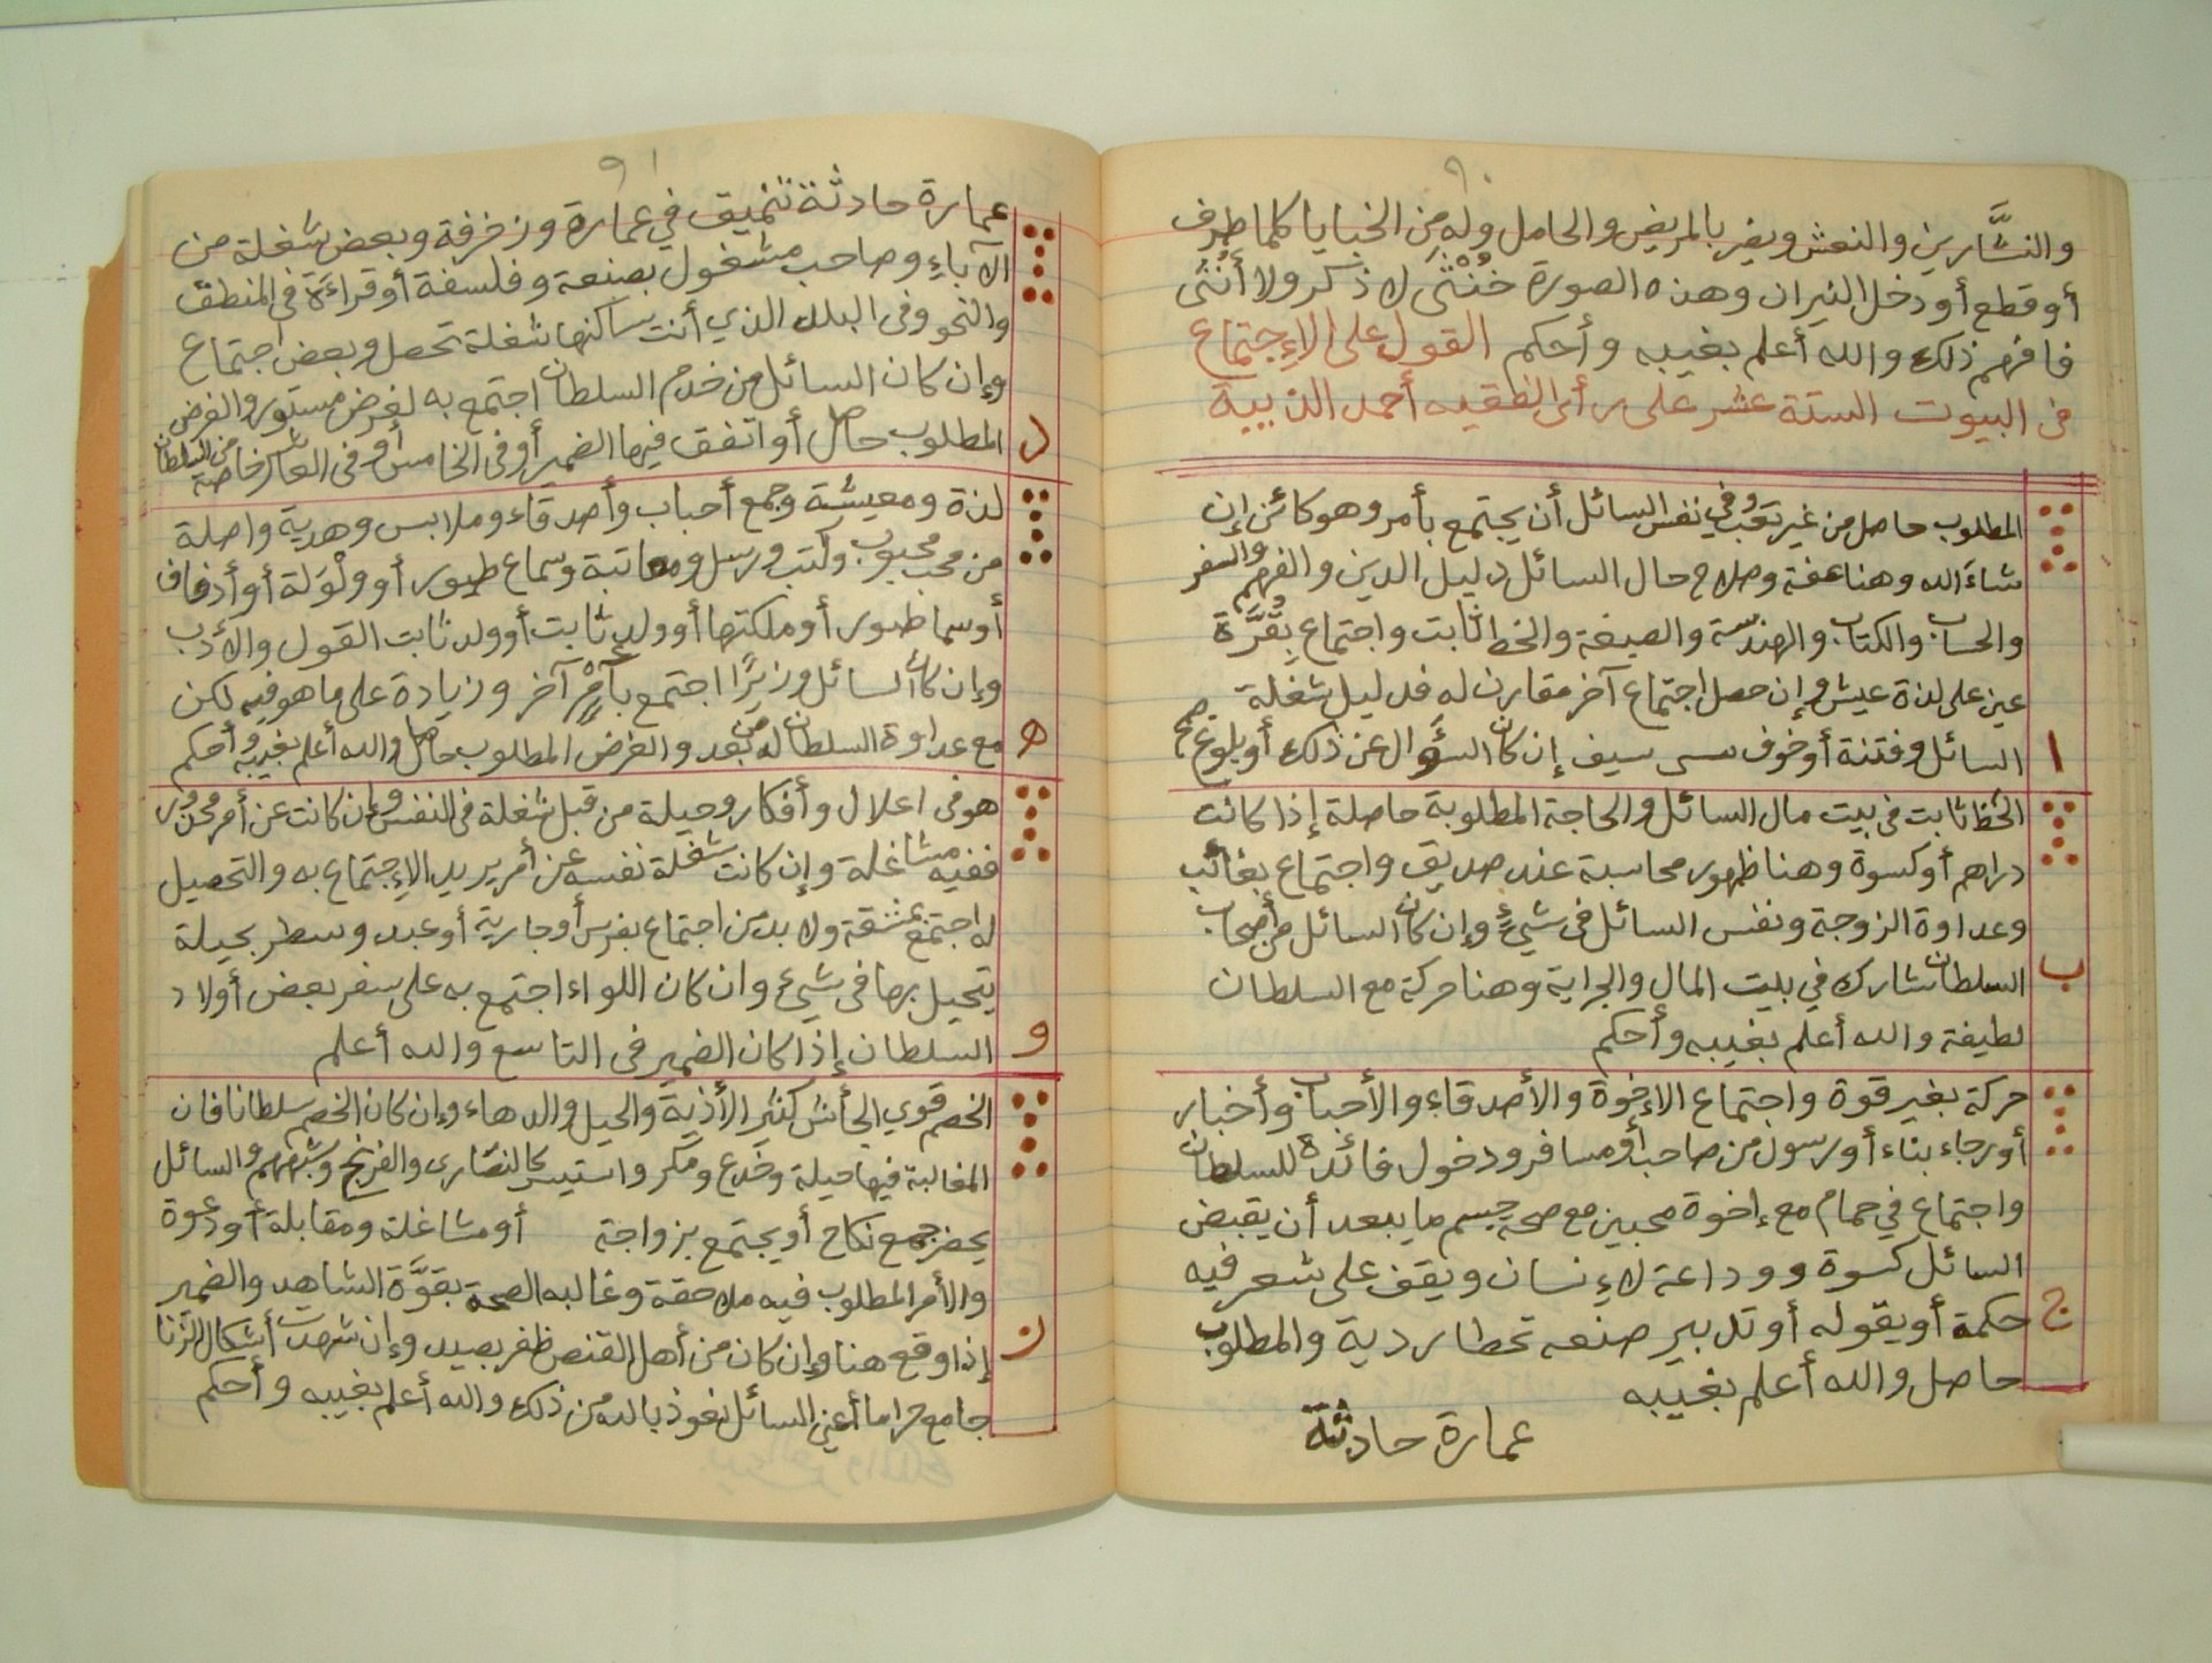 ٩٠
والنشَّارين والنعش ويضر بالمريض والحامل وله من الخبايا كلما طرف
أو قطع أو دخل النيران وهذه الصورة خُنْثَى لا ذكر ولا أُنثى
فافهم ذلك والله أعلم بغيبه وأحكم القول على الإجتماع
فى البيوت الستة عشر على رأى الفقيه أحمد
المطلوب حاصل من غير تعب وفي نفس السائل أن يجتمع بأمر وهو كائن إن
شاء الله وهنا عفة وصلاح حال السائل دليل الدين والفهم والسفر
والحساب والكتاب والهندسة والصيغة والخط ثابت واجتماع بِقُرَّة
عين على لذة عيش وإن حصل اجتماع آخر مقارن له فدليل شغلة
ا السائل وفتنة أو خوف سيف إن كان السؤال عن ذلك أو بلوغ
الحظ ثابت فى بيت مال السائل والحاجة المطلوبة حاصلة إذا كانت
دراهم أو كسوة وهنا ظهور محاسبة عند صديق واجتماع بغائب
وعداوة الزوجة ونفس السائل فى شيءٍ وإن كان السائل من أصحاب
ب السلطان شارك في بيت المال والجراية وهنا حركة مع السلطان
لطيفة والله أعلم بغيبه وأحكم
حركة بغير قوة واجتماع الإخوة والأصدقاء والأحباب وأخبار
أو رجاء بناء أو رسول من صاحب أو مسافر ودخول فائدة للسلطان
واجتماع في حمام مع إخوة محبين مع صحة جسم ما يبعد أن يقبض
السائل كسوة ووداعة لإنسان ويقف على شعر فيه
ج حكمة أو يقوله أو تدبير صنعه تحطا ردية والمطلوب
حاصل والله أعلم بغيبه
عمارة حادثة
٩١
عمارة حادثة تنميق في عمارة وزخرفة وبعض شغلة من
الآباء وصاحب مشغول بصنعة وفلسفة أو قراءَة فى المنطق
والنحو وفى البلد الذي أنت ساكنها شغلة تحصل وبعض اجتماع
وإن كان السائل من خدم السلطان اجتمع به لغرض مستور والغرض
د المطلوب حاصل أو اتفق فيها الضمير أو فى الخامس أو فى العاشر خاصية من السلطان
لذة ومعيشة وجمع أحباب وأصدقاء وملابس وهدية واصلة
من محب محبوب وكتب ورسل ومعاتبة وسماع طيور أو ولْوَلة أو أدفاف
أو سما طيور أو ملكتها أو ولد ثابت أو ولد ثابت القول والأدب
وإن كان السائل وزيرًا اجتمع بأمرٍ آخر وزيادة على ما هو فيه لكن
ه مع عداوة السلطان له من بعد والغرض المطلوب حاصل والله أعلم بغيبه وأحكم
هو فى اعلال وأفكار وحيلة من قبل شغلة فى النفس وإن كانت عن أمر محذور
ففيه مشاغلة وإن كانت شغلة نفسه عن أمر يريد الإجتماع به والتحصيل
له اجتمع بمشقة ولا بد من اجتماع بفرس أو جارية أو عبد وسطر بحيلة
يتحيل بها فى شيءٍ وان كان اللواء اجتمع به على سفر بعض أولاد
و السلطان إذا كان الضمير فى التاسع والله أعلم
الخصم قوي الجأش كثير الأذية والحيل والدهاء وإن كان الخصم سلطانا فان
المغالبة فيها حيلة وخدع ومكر كالنصارى والفرنج وشبههم والسائل
يحضر جمع نكاح أو يجتمع بزواجة أو مشاغلة ومقابلة أو دعوة
والأمر المطلوب فيه ملاحقة وغالبه الصحة بقوَّة الشاهد والضمير
ز إذا وقع هنا وإن كان من أهل القنص ظفر بصيد وإن شهدت أشكال الزنا
جامع حراما أعني السائل نعوذ بالله من ذلك والله أعلم بغيبه وأحكم